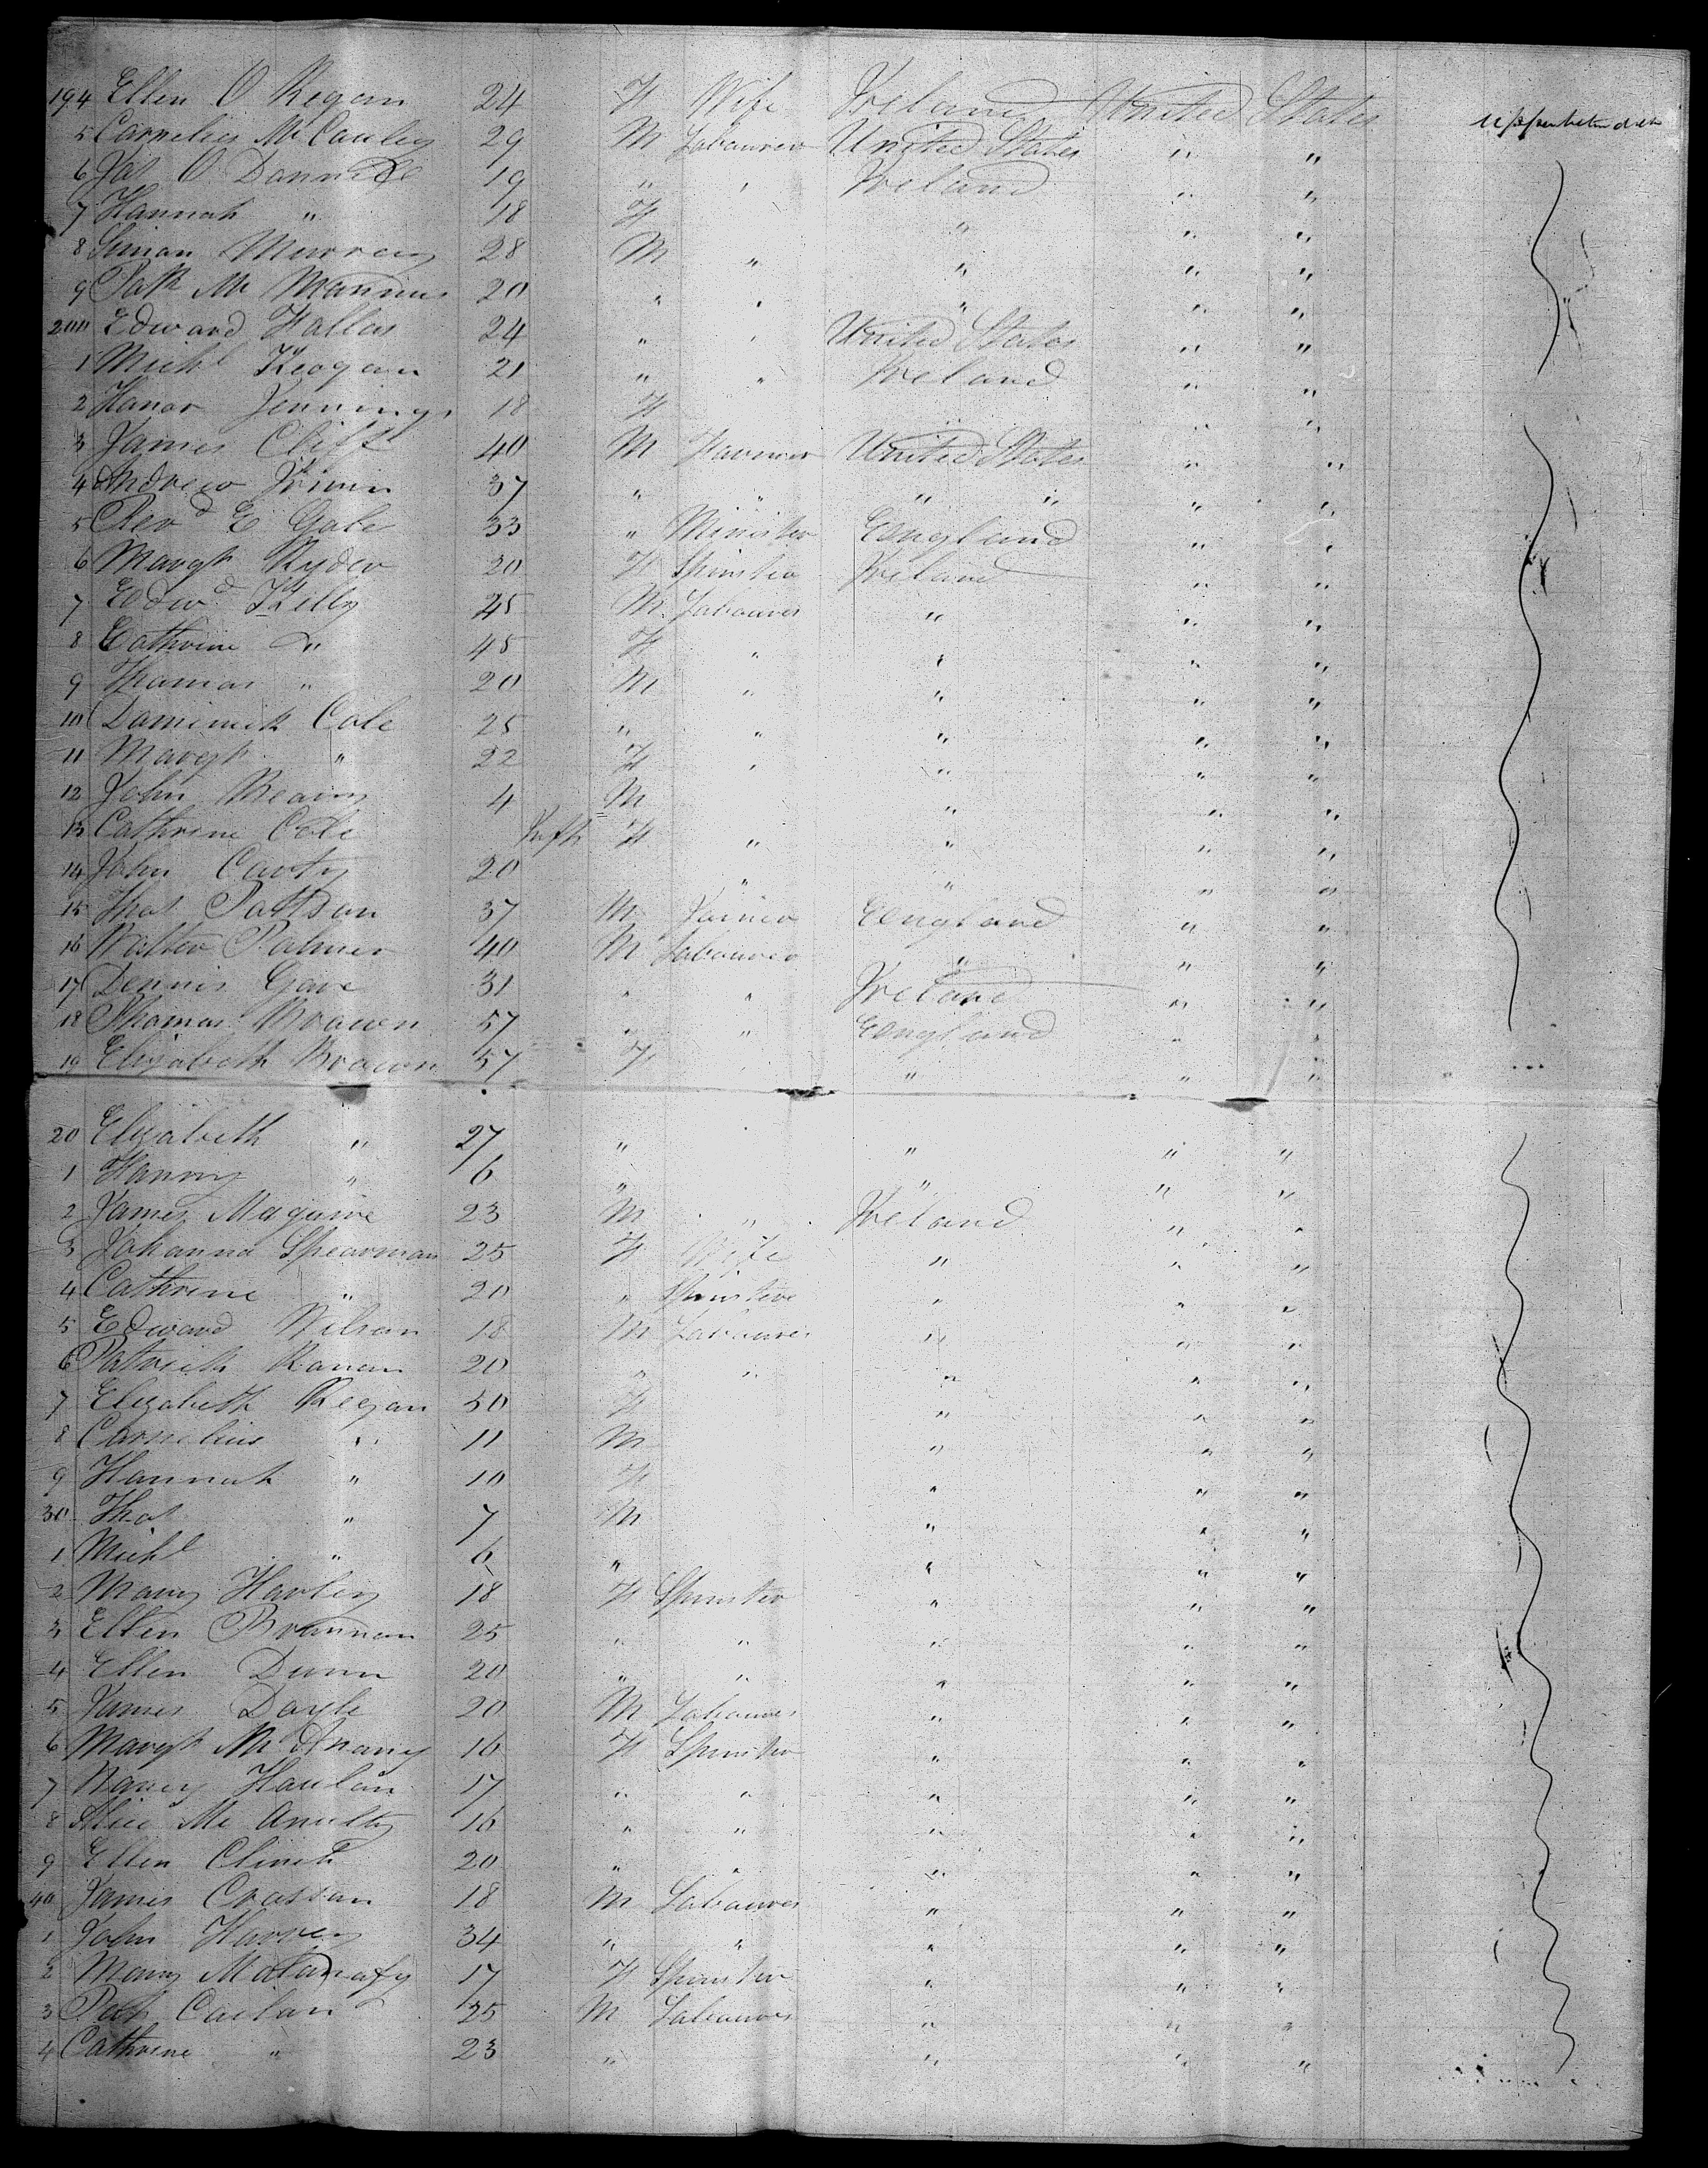 194 Ellen O Regan 24 F Wife Ireland United States
5 Cornelius Mc Cauley 29 M Labourer United States " "
6 Jas O Donnell 19 " " Ireland " "
7 Hannah " 18 F " " "
8 Simon Murray 28 M " " " "
9 Patk Mc Mannus 20 " " " " "
200 Edward Fallas 24 " " United States " "
1 Michl Keogan 21 " " Ireland " "
2 Hanor Jennings 18 F " " "
3 James Clift 40 M Farmer United States " "
4 Andrew Irwin 37 " " " " " "
5 Revd E Gale 33 " Minister England " "
6 Margt Ryder 20 F Spinster Ireland " "
7 Edwd Kelly 45 M Labourer " " "
8 Cathrine " 45 F " " " "
9 Thomas " 20 M " " " "
10 Dominick Cole 25 " " " " "
11 Margt " 22 F " " " "
12 John 4 M " " "
13 Cathrine Cole Inft F " " " "
14 John Carty 20 " " " "
15 Thos Pattson 37 M England " "
16 Walter Palmer 40 M Labourer " " "
17 Dennis Gave 31 " " Ireland " "
18 Thomas Brown 57 " " England " "
19 Elizabeth Brown 57 F " " " "
20 Elizabeth " 27 " " " "
1 Hanny " 6 " " " "
2 James Maguire 23 M " Ireland " "
3 Johanna Spearman 25 F Wife " " "
4 Cathrine " 20 " Spinster " " "
5 Edward Wilson 18 M Labourer " " "
6 Patrick Ronan 20 " " " " "
7 Elizabeth Regan 30 F " " "
8 Cornelius " 11 M " " "
9 Hannah " 10 F " " "
30 Thos " 7 M " " "
1 Michl " 6 " " " "
2 Mary Harley 18 F Spinster " " "
3 Ellen Brannan 25 " " " " "
4 Ellen Dunn 20 " " " " "
5 James Doyle 20 M Labourer " " "
6 Margt Mc 16 F Spinster " " "
7 Nancy Hanlon 17 " " " " "
8 Alice Mc Anulty 16 " " " " "
9 Ellen Clinch 20 " " " " "
40 James Crossan 18 M Labourer " " "
1 John Harvey 34 " " " " "
2 Mary 17 F Spinster " " "
3 Pat Carlan 25 M Labourer " " "
4 Cathrine " 23 " " " "